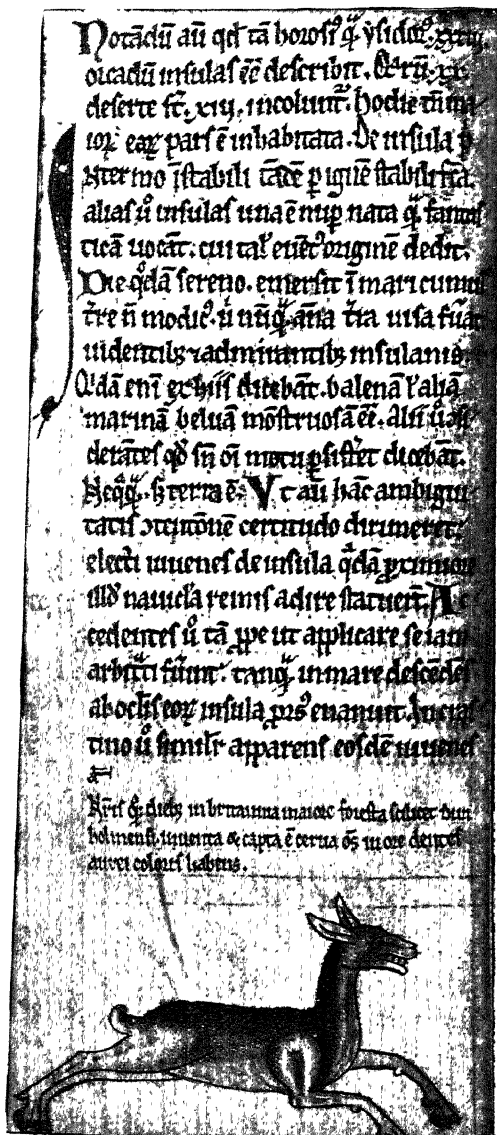 Notādū aū qđ tā horosi⁹ q̃ ysidor⁹ .xxxiij.
orcadū insulas eē describit. Quarū .xx.
deserte st̄. xiij. incolunt̃. hodie tn̄ ma
ioꝝ eaꝝ pars ē inhabitata. De insula p
Nter mo īstabili tādē p ignē stabili fc̄a.
alias ů insulas una ē nup nata q̃ fantas
ticā uocāt. cui tal̃ euēt⁹ originē dedit.
Die q̊dā sereno. emersit ī mari cumul⁹
t̃re n̄ modic⁹. ů nūq̃ anꞇ̄a t̃ra uisa fūat
uidentibꝫ ⁊ admirantibꝫ insulanis
Q̇dā eni ex hiis dicebāt. balenā ł aliā
marinā beluā mōstruosā eē. Alii ů 9si
derātes qđ sn̄ oī motu ꝑsist̃et dicebāt.
Neq̃q̃. sꝫ terra ē. Vt aū hāc ambigui
tatis ↄtentōnē certitudo dirimeret.
electi iuuenes de insula q̃dā ꝓximiore
illđ nauicl̃a remis adire statuerūt. Ac
cedentes ů tā ꝓpe ut applicare se iam
arbitᵃti fūint. tanq̃ in mare descēdēs
ab ocl̃is eoꝝ insula ꝓrs⁹ euanuit. In cras
tino ů simil̃r apparens eosdē iuuenes
Nr̄is q̃ dieb⁹ in britannia maiore foresta scilicet dun
holmensi. inuenta & capta ē cerua oēs in ore dentes
aurei coloris habens.